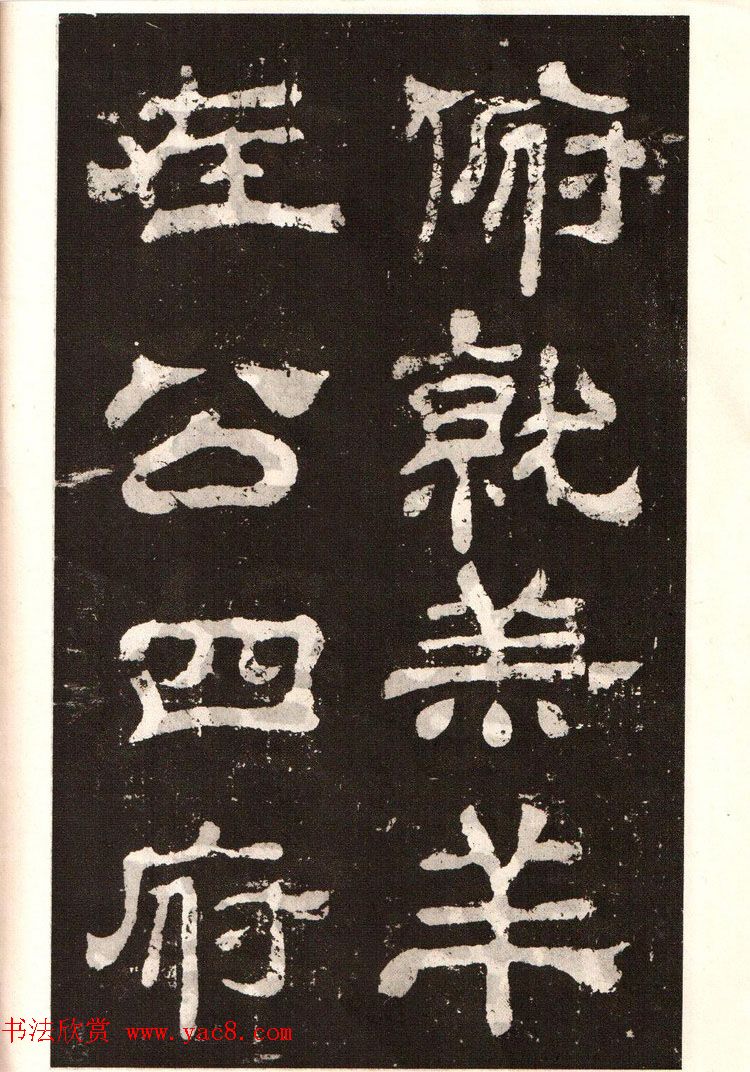 俯就羔羊
在公四府
书法欣赏 www.yac8.com